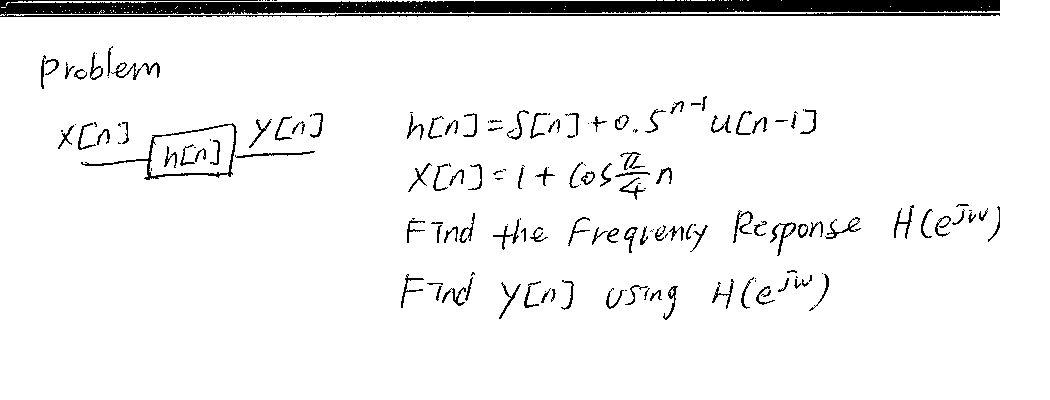 Problem
x[n] h[n] y[n]
h[n] = δ[n] + 0.5ⁿ⁻¹ u[n-1]
x[n] = 1 + cos π/4 n
Find the Frequency Response H(e^jw)
Find y[n] using H(e^jw)